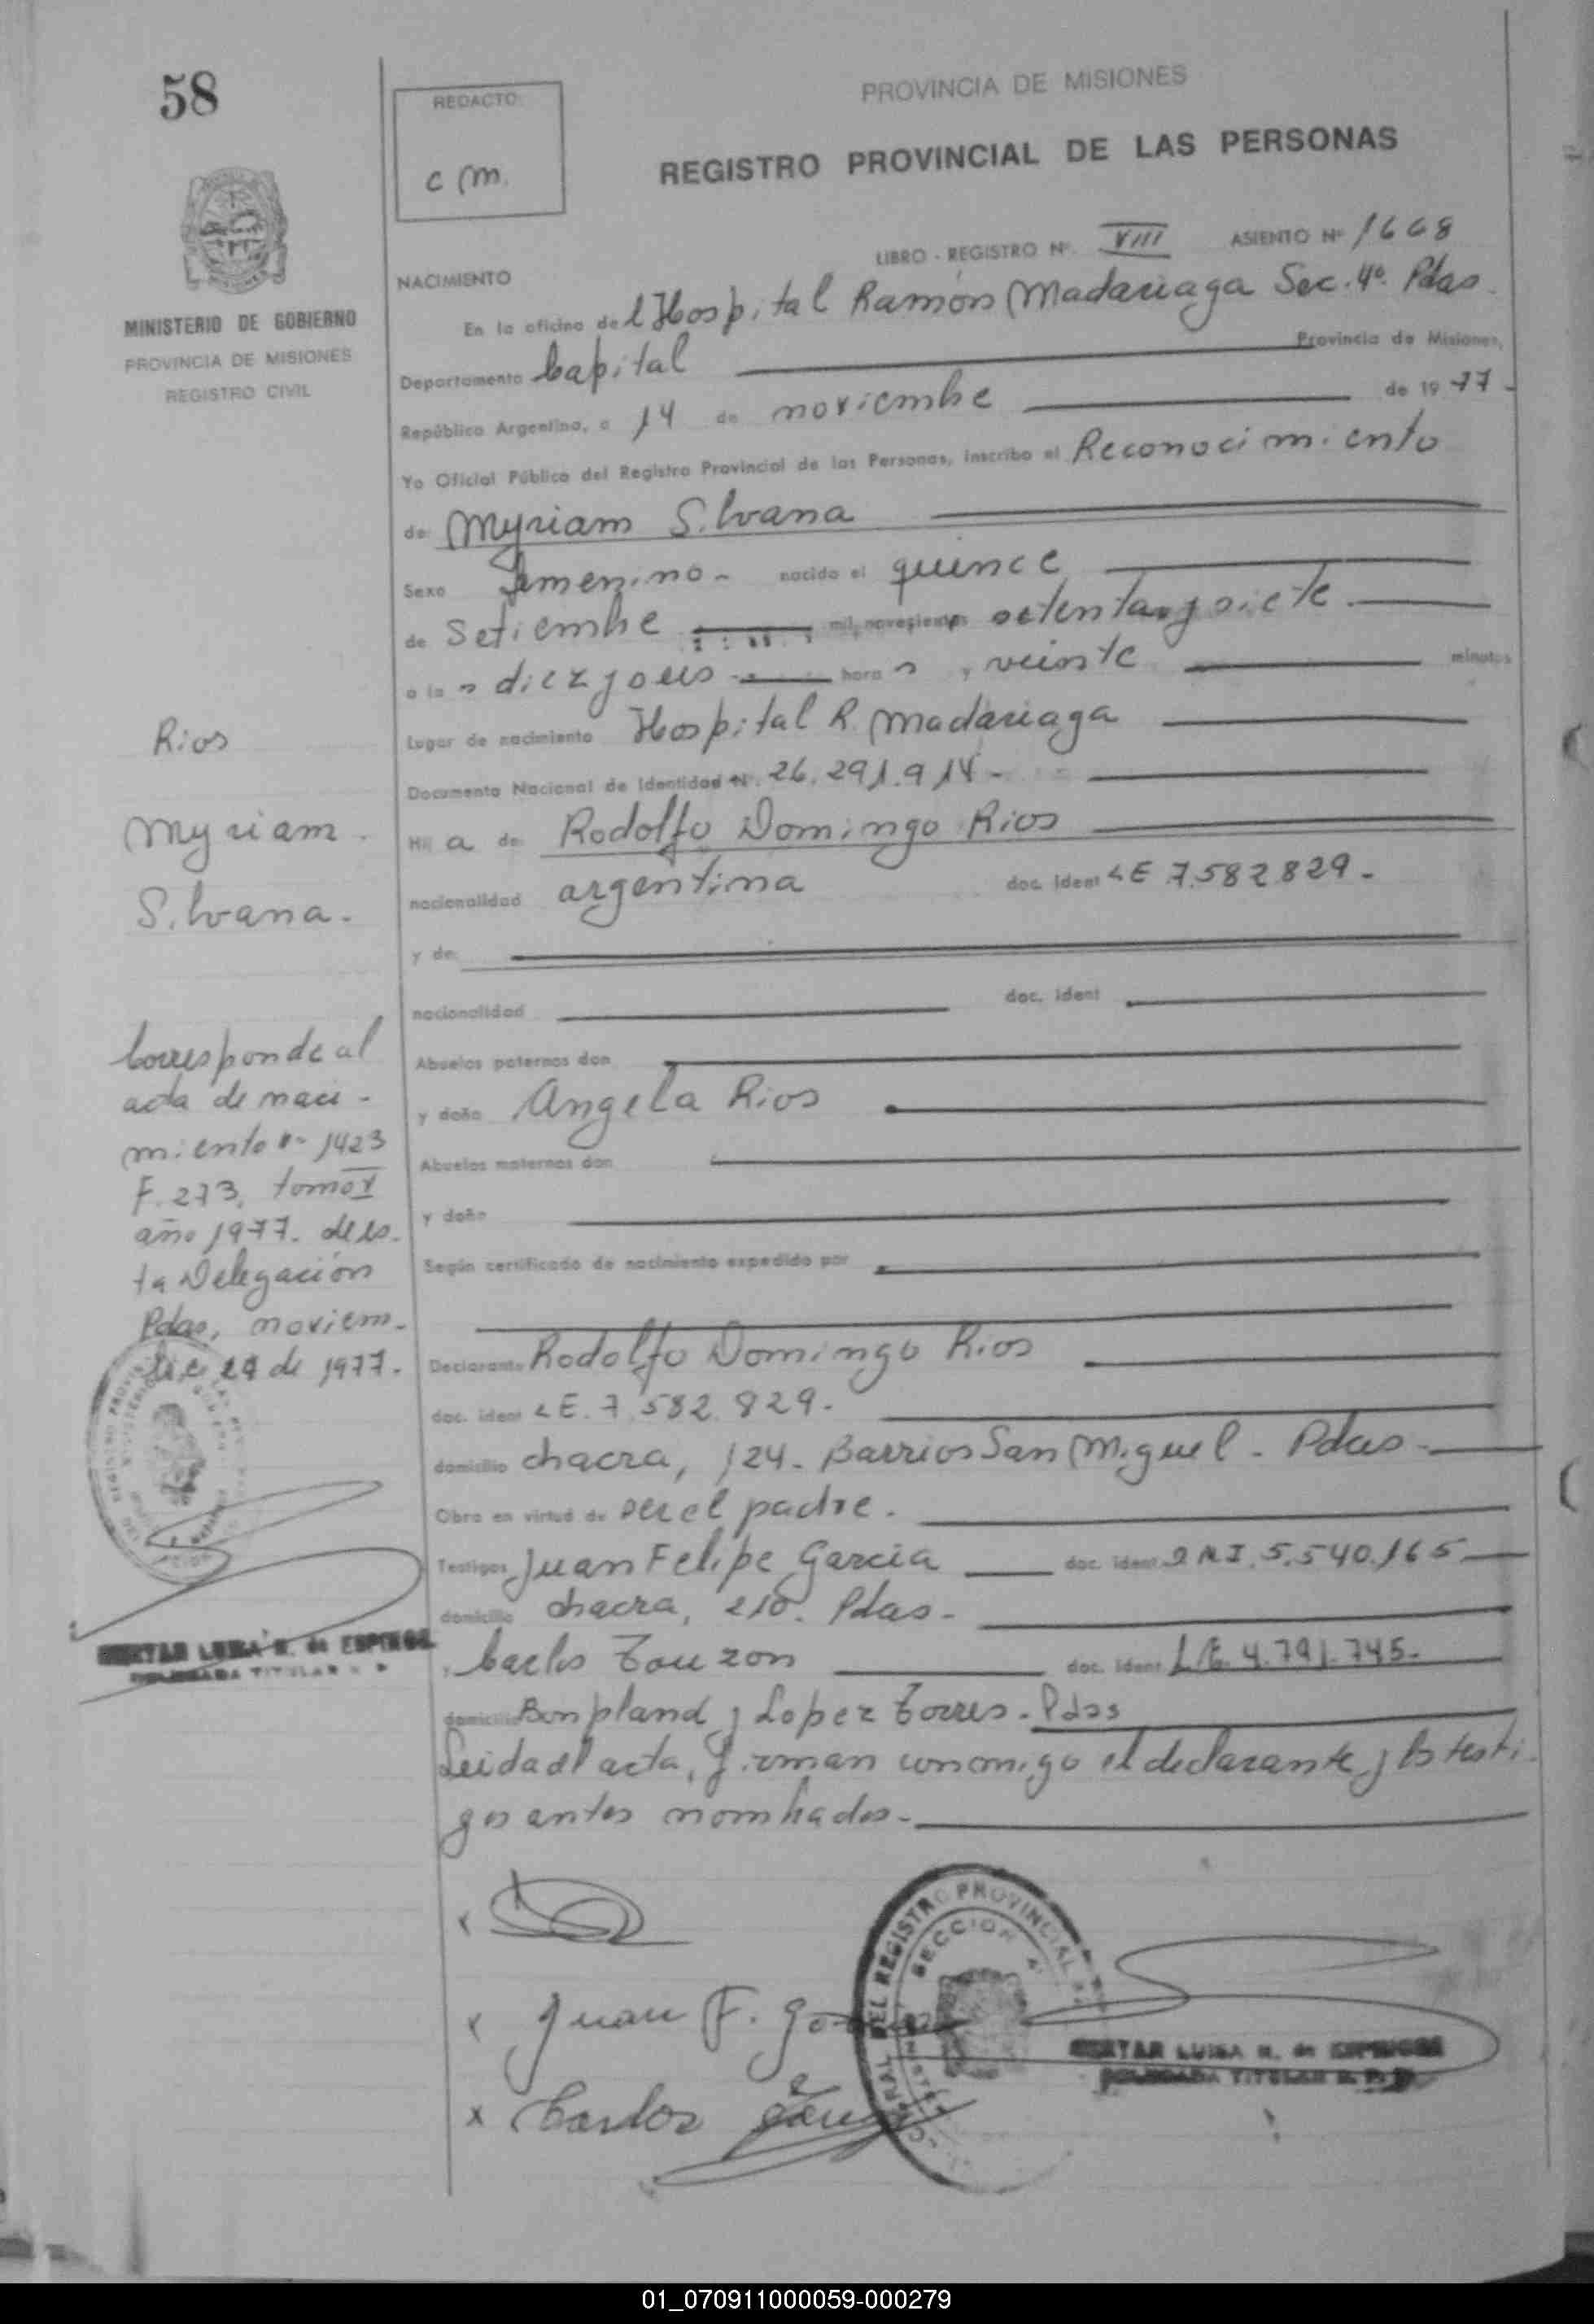 58
REDACTO
c m.
PROVINCIA DE MISIONES
REGISTRO PROVINCIAL DE LAS PERSONAS
MINISTERIO DE GOBIERNO
PROVINCIA DE MISIONES
REGISTRO CIVIL
LIBRO - REGISTRO Nº. VIII ASIENTO Nº 1668
NACIMIENTO
En la oficina del Hospital Ramón Madariaga Sec. 4º. Pdas.
Departamento Capital Provincia de Misiones,
República Argentina, a 14 de noviembre de 1977-
Yo Oficial Público del Registro Provincial de las Personas, inscribo el Reconocimiento
de Myriam Silvana
Sexo femenino- nacido el quince
de Setiembre mil novecientos setenta y siete.
a las diez y seis horas y veinte minutos
Lugar de nacimiento Hospital R. Madariaga
Documento Nacional de Identidad Nº. 26.291.914-
Hija de Rodolfo Domingo Rios
nacionalidad argentina doc. ident LE 7.582829-
y de
nacionalidad doc. ident
Abuelos paternos don
y doña Angela Rios
Abuelos maternos don
y doña
Según certificado de nacimiento expedido por
Declarante Rodolfo Domingo Rios
doc. ident LE. 7.582.829.
domicilio chacra, 124. Barrios San Miguel - Pdas-
Obra en virtud de ser el padre.
Testigos Juan Felipe Garcia doc. ident. DNI. 5.540.165
domicilio chacra, 210. Pdas-
y Carlos Touzon doc. ident L.E. 4.791.745-
domicilio Bonpland y Lopez Torres. Pdas
Leida el acta, firman conmigo el declarante y los testi-
gos antes nombrados-
Rios
Myriam.
Silvana.
Corresponde al
acta de naci-
miento nº 1423
F. 273, tomo V
año 1977. de es-
ta Delegación
Pdas, noviem-
bre 14 de 1977.
LUISA R. de ESPINOSA
DELEGADA TITULAR
x
x Juan F.
x Carlos
DEL REGISTRO PROVINCIAL
SECCION 4ª
LUISA R. de ESPINOSA
DELEGADA TITULAR
01_070911000059-000279